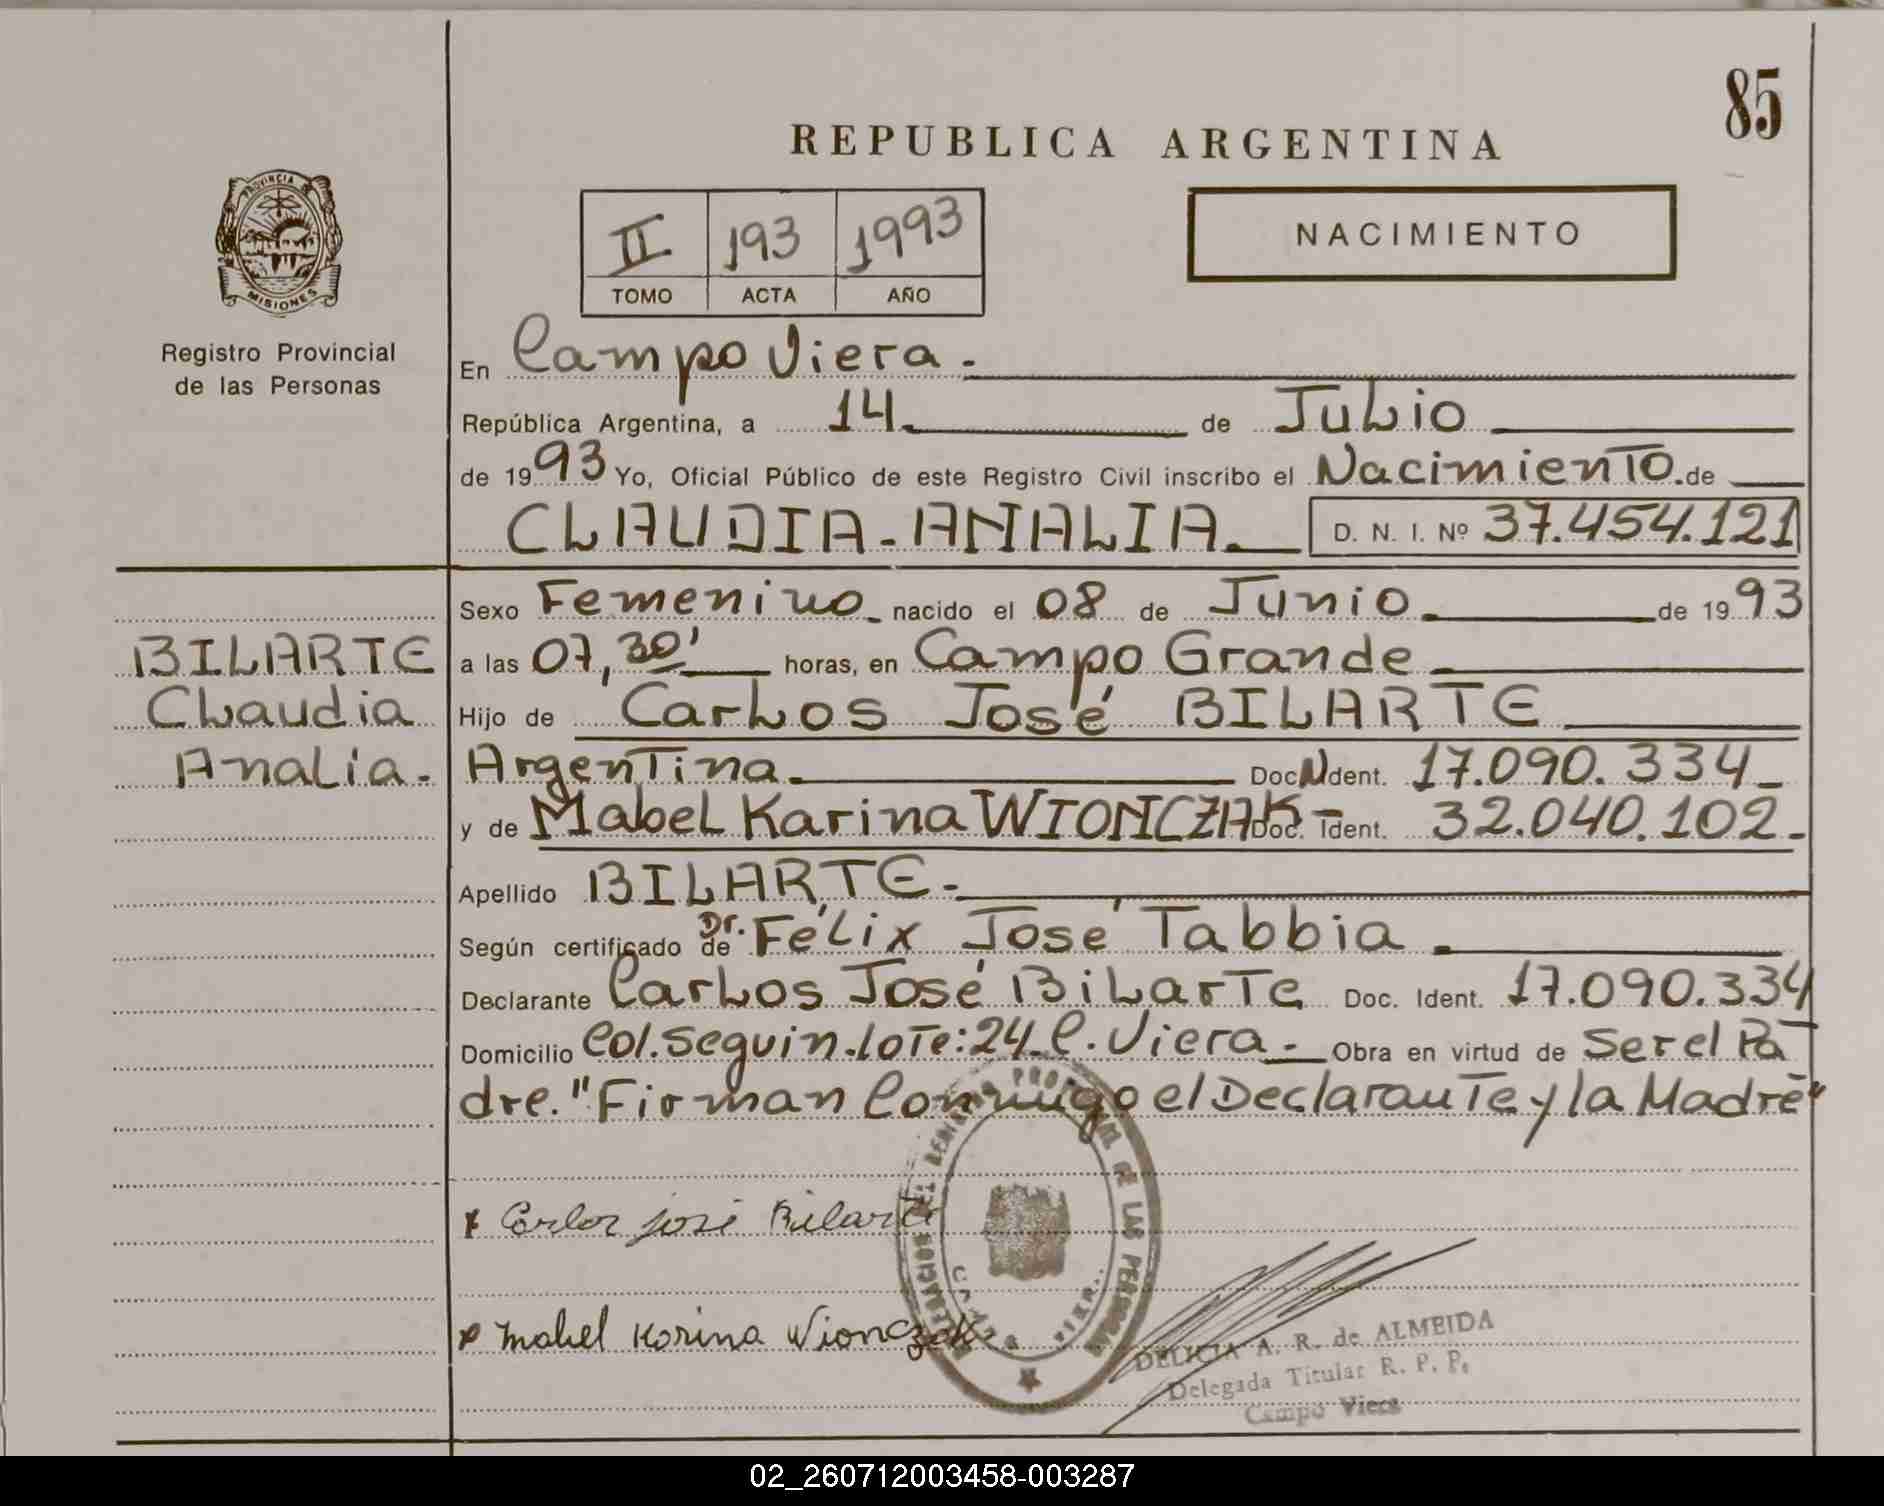 85
REPUBLICA ARGENTINA
PROVINCIA DE
MISIONES
Registro Provincial
de las Personas
II 193 1993
TOMO ACTA AÑO
NACIMIENTO
En Campo Viera.
República Argentina, a 14 de Julio
de 1993 Yo, Oficial Público de este Registro Civil inscribo el Nacimiento de
CLAUDIA - ANALIA. D. N. I. Nº 37.454.121
BILARTE
Claudia
Analia.
Sexo Femenino nacido el 08 de Junio de 1993
a las 07,30' horas, en Campo Grande
Hijo de Carlos José BILARTE
Argentina Doc. Ident. 17.090.334
y de Mabel Karina WIONCZAK Doc. Ident. 32.040.102.
Apellido BILARTE.
Según certificado de Dr. Félix José Tabbia
Declarante Carlos José Bilarte Doc. Ident. 17.090.334
Domicilio Col. Seguin. lote: 24 C. Viera. Obra en virtud de Ser el Pa
dre. "Firman Conmigo el Declarante y la Madre"
x Carlos josé Bilarte
x Mabel Karina Wionczak
DE LAS PERSONAS
DELICIA A. R. de ALMEIDA
Delegada Titular R. P. P.
Campo Viera
02_260712003458-003287